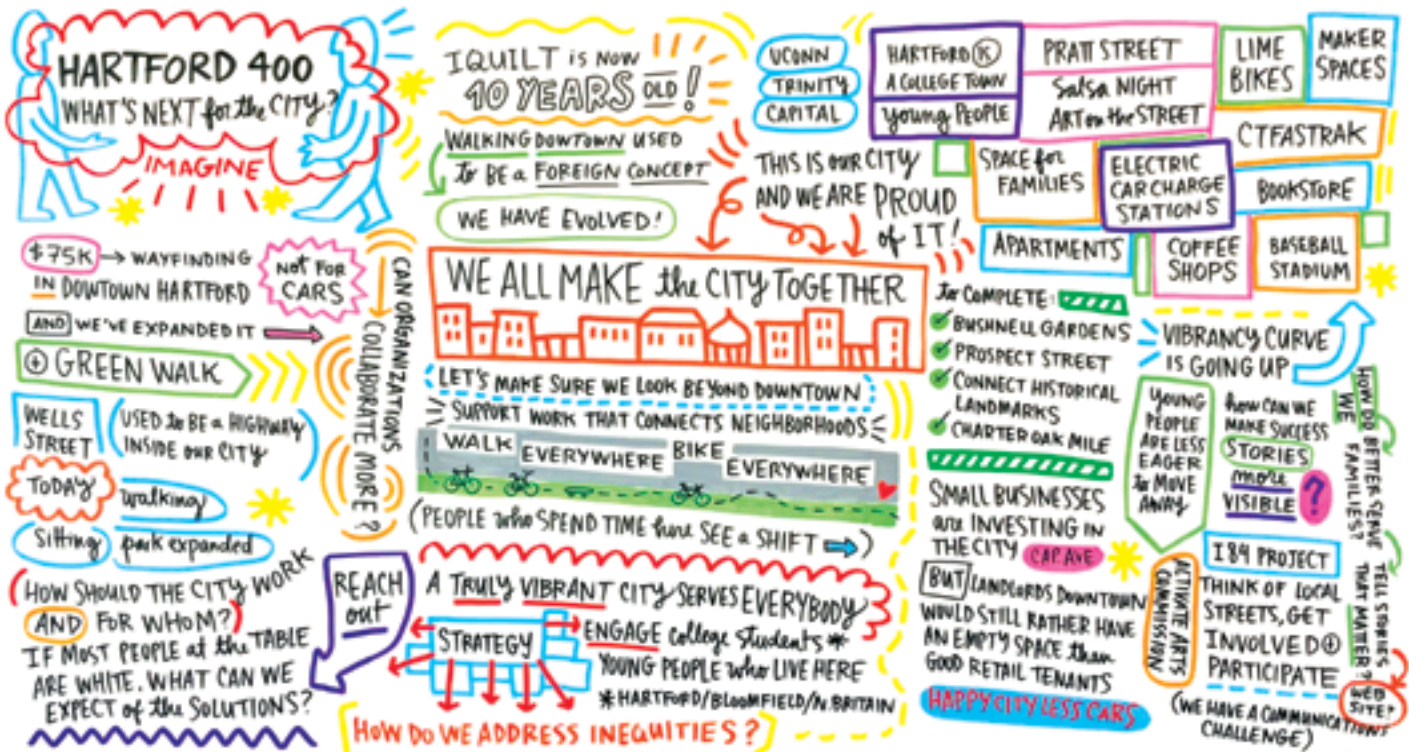 HARTFORD 400
WHAT'S NEXT for the CITY?
IMAGINE
$75K → WAYFINDING
IN DOWTOWN HARTFORD
NOT FOR
CARS
AND WE'VE EXPANDED IT
GREEN WALK
WELLS
STREET
(USED to BE a HIGHWAY
INSIDE OUR CITY)
TODAY
walking
Sitting
park expanded
(HOW SHOULD THE CITY WORK
AND FOR WHOM?)
IF MOST PEOPLE at the TABLE
ARE WHITE. WHAT CAN WE
EXPECT of the SOLUTIONS?
CAN ORGANIZATIONS
COLLABORATE MORE?
REACH
out
IQUILT is NOW
10 YEARS OLD!
WALKING DOWTOWN USED
to BE a FOREIGN CONCEPT
WE HAVE EVOLVED!
UCONN
TRINITY
CAPITAL
THIS IS OUR CITY
AND WE ARE PROUD
of IT!
WE ALL MAKE the CITY TOGETHER
LET'S MAKE SURE WE LOOK BEYOND DOWNTOWN
SUPPORT WORK THAT CONNECTS NEIGHBORHOODS
WALK EVERYWHERE BIKE EVERYWHERE
(PEOPLE who SPEND TIME here SEE a SHIFT →)
A TRULY VIBRANT CITY SERVES EVERYBODY
STRATEGY
ENGAGE college students *
YOUNG PEOPLE who LIVE HERE
* HARTFORD/BLOOMFIELD/N.BRITAIN
[HOW DO WE ADDRESS INEQUITIES?]
HARTFORD K
A COLLEGE TOWN
young PEOPLE
PRATT STREET
Salsa NIGHT
ART on the STREET
LIME
BIKES
MAKER
SPACES
CTFASTRAK
SPACE for
FAMILIES
ELECTRIC
CAR CHARGE
STATIONS
BOOKSTORE
APARTMENTS
COFFEE
SHOPS
BASEBALL
STADIUM
to COMPLETE:
BUSHNELL GARDENS
PROSPECT STREET
CONNECT HISTORICAL
LANDMARKS
CHARTER OAK MILE
SMALL BUSINESSES
are INVESTING IN
THE CITY CAP.AVE
BUT LANDLORDS DOWNTOWN
WOULD STILL RATHER HAVE
AN EMPTY SPACE than
GOOD RETAIL TENANTS
HAPPY CITY LESS CARS
VIBRANCY CURVE
IS GOING UP
YOUNG
PEOPLE
ARE LESS
EAGER
to MOVE
AWAY
how CAN WE
MAKE SUCCESS
STORIES
more
VISIBLE
?
HOW DO WE
BETTER SERVE
FAMILIES?
ACTIVATE ARTS
COMMISSION
I 84 PROJECT
THINK OF LOCAL
STREETS, GET
INVOLVED
PARTICIPATE
(WE HAVE A COMMUNICATIONS
CHALLENGE)
TELL STORIES
THAT MATTER?
WEB
SITE?